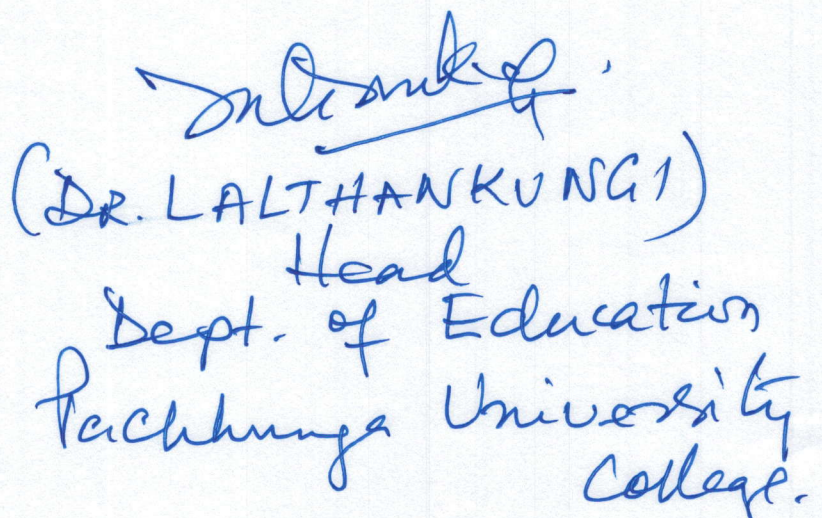 (DR. LALTHANKUNGI)
Head
Dept. of Education
Pachhunga University
College.